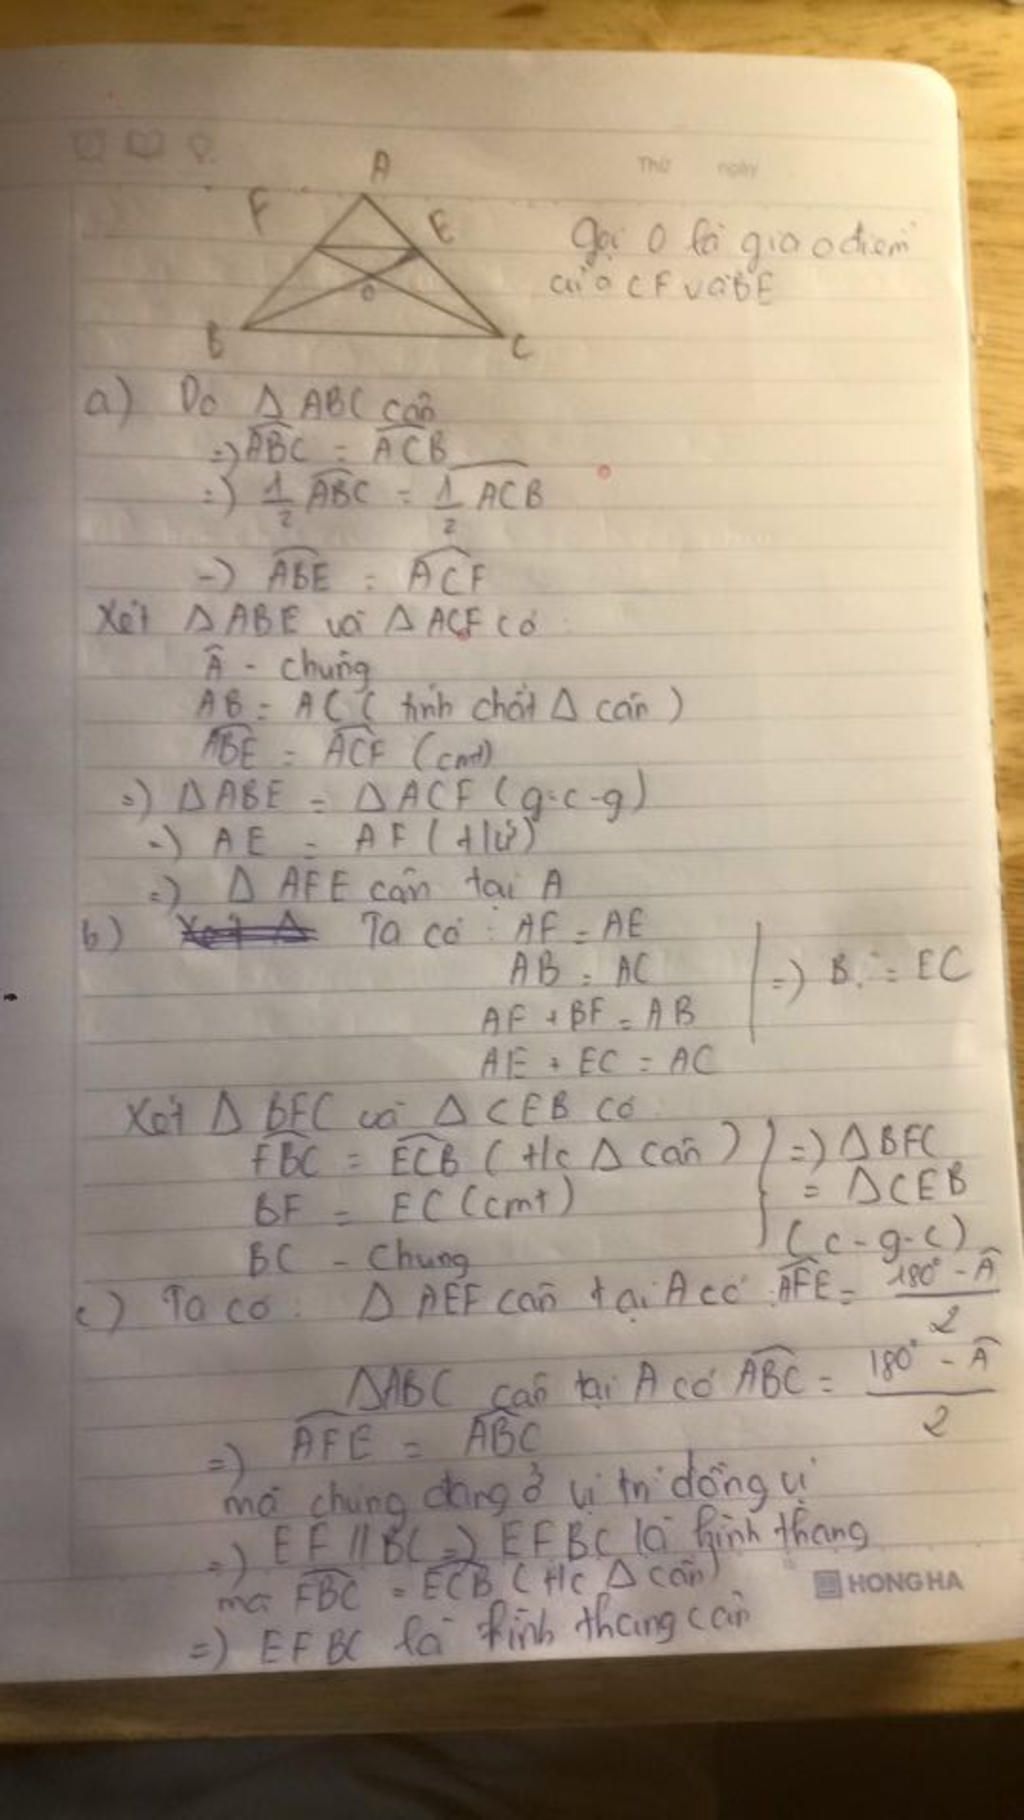 Thứ ngày
A
F
E
Gọi O là giao điểm
của CF và BE
O
B
C
a) Do Δ ABC cân
=) \widehat{ABC} = \widehat{ACB}
=) \frac{1}{2} \widehat{ABC} = \frac{1}{2} \widehat{ACB}
-) \widehat{ABE} = \widehat{ACF}
Xét Δ ABE và Δ ACF có :
\widehat{A} - chung
AB = AC ( tính chất Δ cân )
\widehat{ABE} = \widehat{ACF} (cmt)
=) Δ ABE = Δ ACF ( g-c-g )
-) AE = AF ( t/ứ )
=) Δ AFE cân tại A
b) Ta có : AF = AE
AB = AC =) B = EC
AF + BF = AB
AE + EC = AC
Xét Δ BFC và Δ CEB có
\widehat{FBC} = \widehat{ECB} ( t/c Δ cân ) =) Δ BFC
BF = EC (cmt) = Δ CEB
BC - Chung ( c-g-c )
c) Ta có : Δ AEF cân tại A có : \widehat{AFE} = \frac{180° - \widehat{A}}{2}
Δ ABC cân tại A có \widehat{ABC} = \frac{180° - \widehat{A}}{2}
=) \widehat{AFE} = \widehat{ABC}
mà chúng đang ở vị trí đồng vị
=) EF // BC =) EFBC là hình thang
mà \widehat{FBC} = \widehat{ECB} ( t/c Δ cân )
HONG HA
=) EFBC là hình thang cân